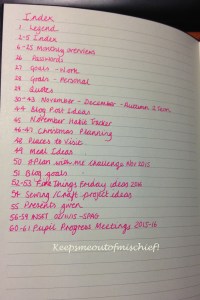 Index
1 Legend
2-5 Index
6-25 Monthly overviews
26 Passwords
27 Goals - Work
28 Goals - Personal
29 Quotes
30-43 November - December - Autumn 2 Term
44 Blog Post Ideas
45 November Habit Tracker
46-47 Christmas Planning
48 Places to Visit
49 Meal Ideas
50 #Plan with me challenge Nov 2015
51 Blog goals
52-53 Five Things Friday ideas 2016
54 Sewing/Craft project ideas
55 Presents given
56-59 INSET 02/11/15 - SPAG
60-61 Pupil Progress Meetings 2015-16
Keepsmeoutofmischief!